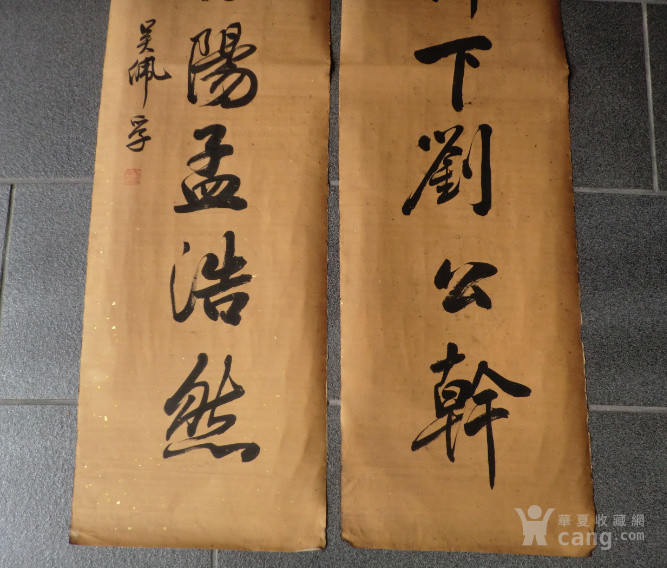 下劉公幹
陽孟浩然
吴佩孚
華夏收藏網
cang.com